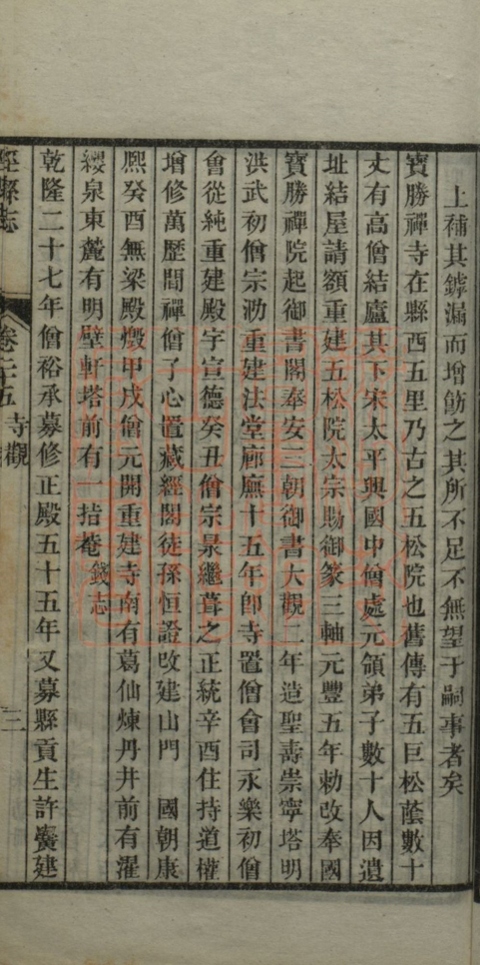 上補其罅漏而增飭之其所不足不無望于嗣事者矣
寶勝禪寺在縣西五里乃古之五松院也舊傳有五巨松蔭數十
丈有高僧結廬其下宋太平興國中僧處元領弟子數十人因遺
址結屋請額重建五松院太宗賜御篆三軸元豐五年勅改奉國
寶勝禪院起御書閣奉安三朝御書大觀二年造聖壽崇寧塔明
洪武初僧宗泐重建法堂廊廡十五年卽寺置僧會司永樂初僧
會從純重建殿宇宣德癸丑僧宗景繼葺之正統辛酉住持道權
增修萬歷間禪僧了心置藏經閣徒孫恒證改建山門 國朝康
熙癸酉無梁殿燬甲戌僧元開重建寺南有葛仙煉丹井前有濯
纓泉東麓有明壁軒塔前有一指菴錢志
乾隆二十七年僧裕承募修正殿五十五年又募縣貢生許爨建
涇縣志 卷二十五 寺觀 三